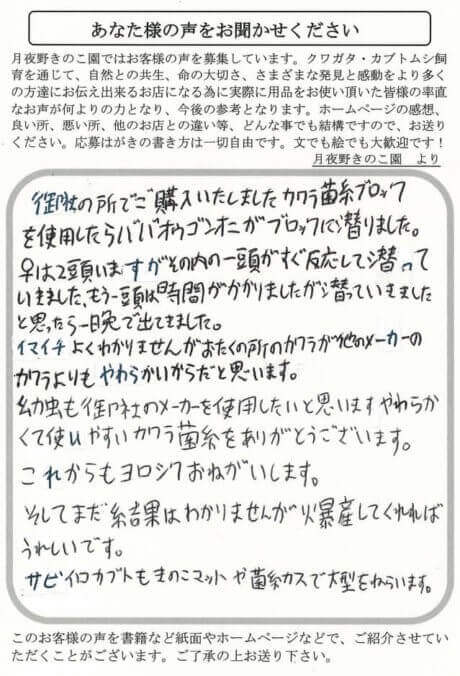 あなた様の声をお聞かせください
月夜野きのこ園ではお客様の声を募集しています。クワガタ・カブトムシ飼
育を通じて、自然との共生、命の大切さ、さまざまな発見と感動をより多く
の方達にお伝え出来るお店になる為に実際に用品をお使い頂いた皆様の率直
なお声が何よりの力となり、今後の参考となります。ホームページの感想、
良い所、悪い所、他のお店との違い等、どんな事でも結構ですので、お送り
ください。応募はがきの書き方は一切自由です。文でも絵でも大歓迎です！
月夜野きのこ園　より
御社の所でご購入いたしましたカワラ菌糸ブロック
を使用したらババオウゴンオニがブロックに潜りました。
♀は2頭いますがその内の一頭がすぐ反応して潜って
いきました、もう一頭は時間がかかりましたが潜っていきました
と思ったら一晩で出てきました。
イマイチよくわかりませんがおたくの所のカワラが他のメーカーの
カワラよりもやわらかいからだと思います。
幼虫も御社のメーカーを使用したいと思いますやわらか
くて使いやすいカワラ菌糸をありがとうございます。
これからもヨロシクおねがいします。
そしてまだ結果はわかりませんが爆産してくれれば
うれしいです。
サビイロカブトもきのこマットや菌糸カスで大型をねらいます。
このお客様の声を書籍など紙面やホームページなどで、ご紹介させてい
ただくことがございます。ご了承の上お送り下さい。